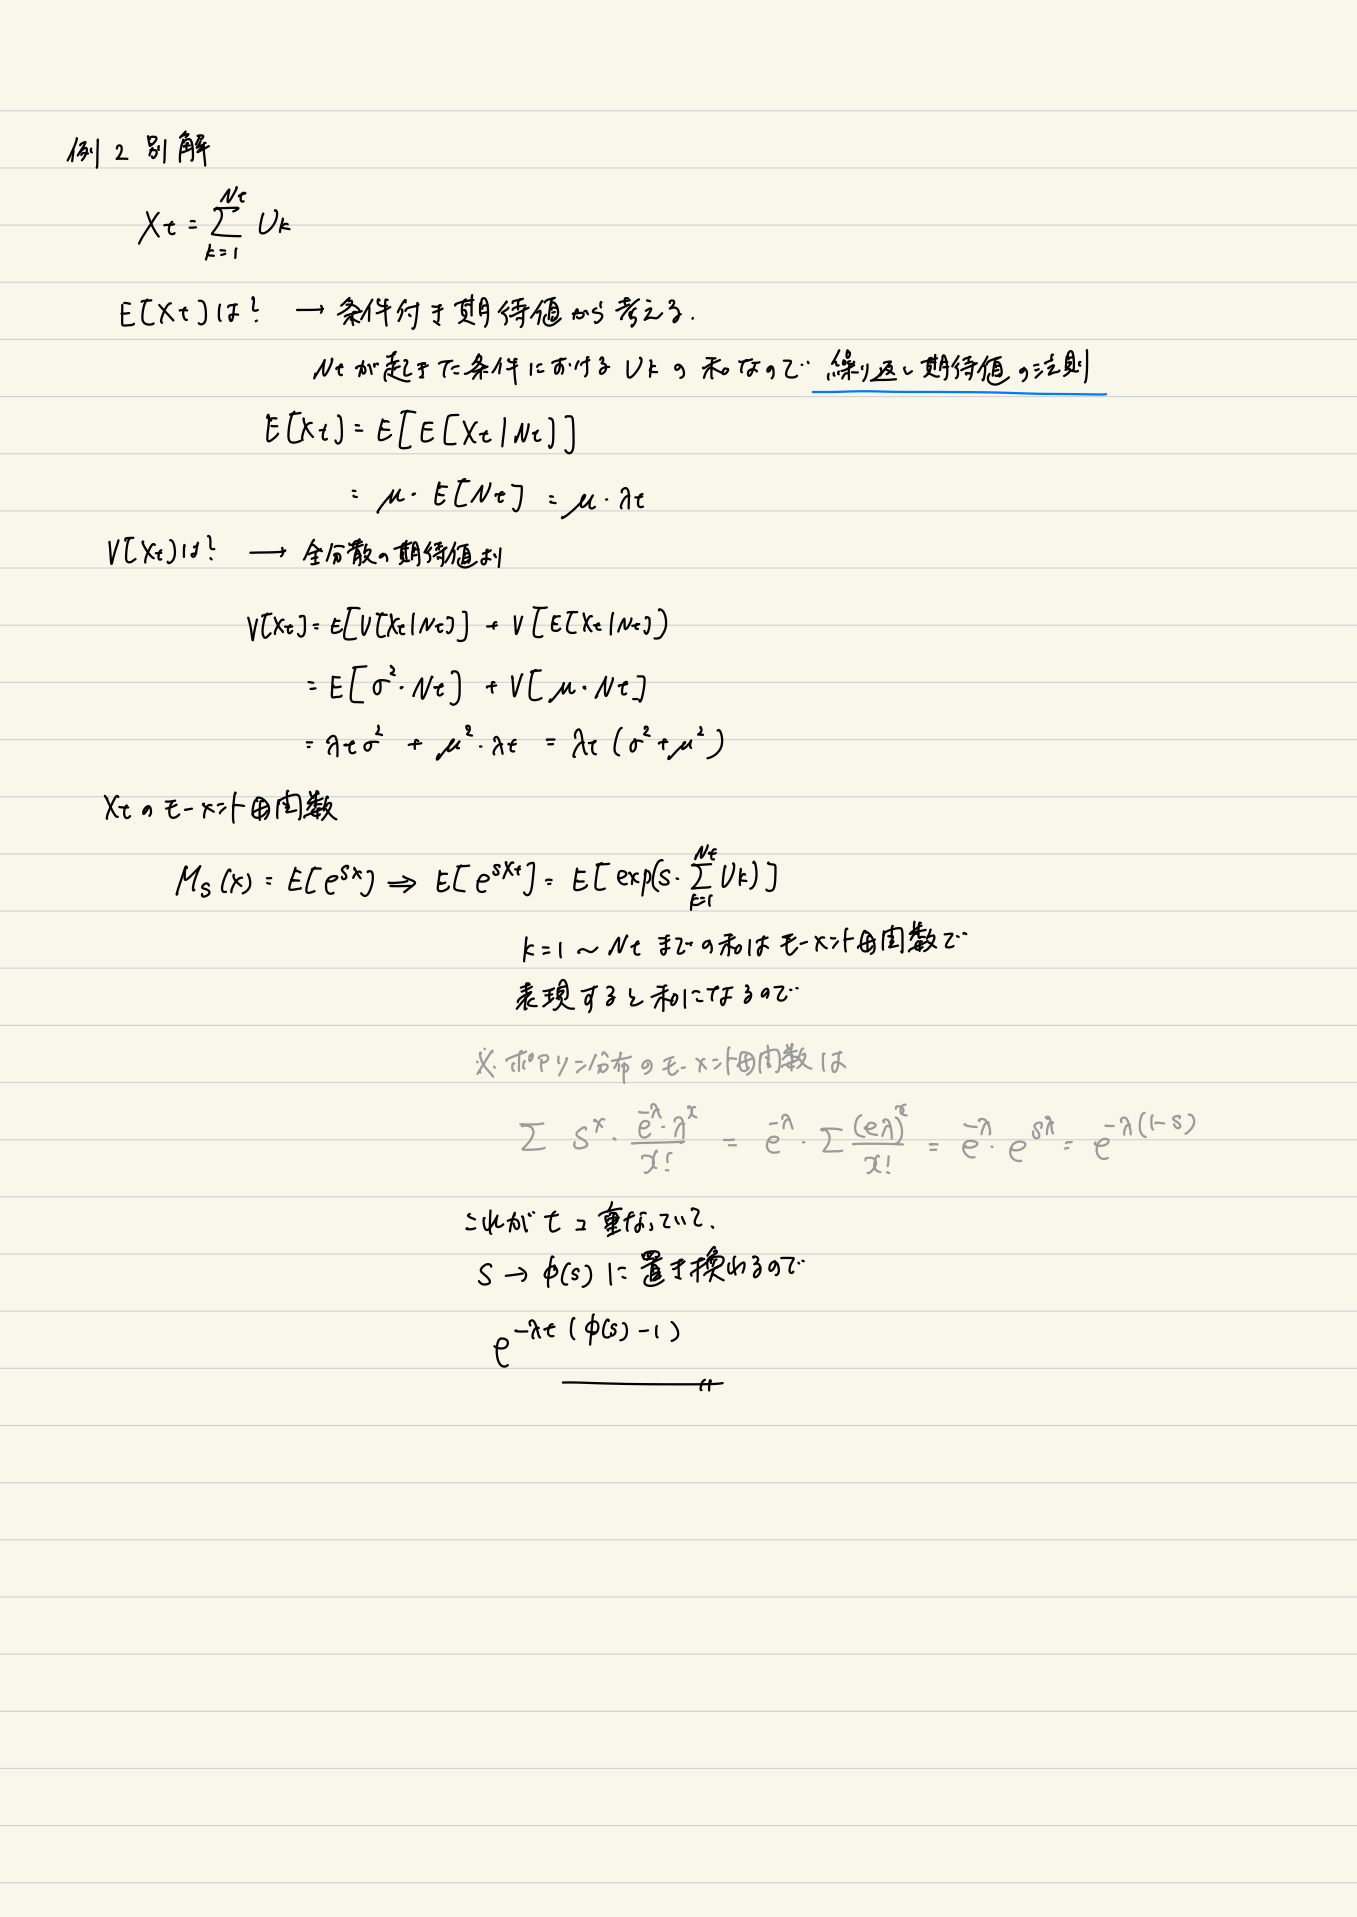 例2 別解
Xt = Σ_{k=1}^{Nt} Uk
E[Xt]は? → 条件付き期待値から考える.
Ntが起きた条件における Ukの和なので 繰り返し期待値の法則
E[Xt] = E[E[Xt|Nt]]
= μ・E[Nt] = μ・λt
V[Xt]は? → 全分散の期待値より
V[Xt] = E[V[Xt|Nt]] + V[E[Xt|Nt]]
= E[σ²・Nt] + V[μ・Nt]
= λtσ² + μ²・λt = λt(σ²+μ²)
Xtのモーメント母関数
Ms(x) = E[e^{sx}] ⇒ E[e^{sXt}] = E[exp(s・Σ_{k=1}^{Nt} Uk)]
k=1〜Nt までの和はモーメント母関数で
表現すると和になるので
※ポアソン分布のモーメント母関数は
Σ s^x・\frac{e^{-λ}・λ^x}{x!} = e^{-λ}・Σ\frac{(eλ)^x}{x!} = e^{-λ}・e^{sλ} = e^{-λ(1-s)}
これがtコ重なっていて、
S → φ(s)に置き換わるので
e^{-λt(φ(s)-1)}